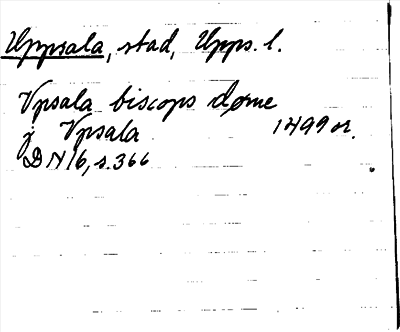 Uppsala, stad, Upps. l.
Vpsala biscops døme
j Vpsala 1499 or.
DN 16, s. 366